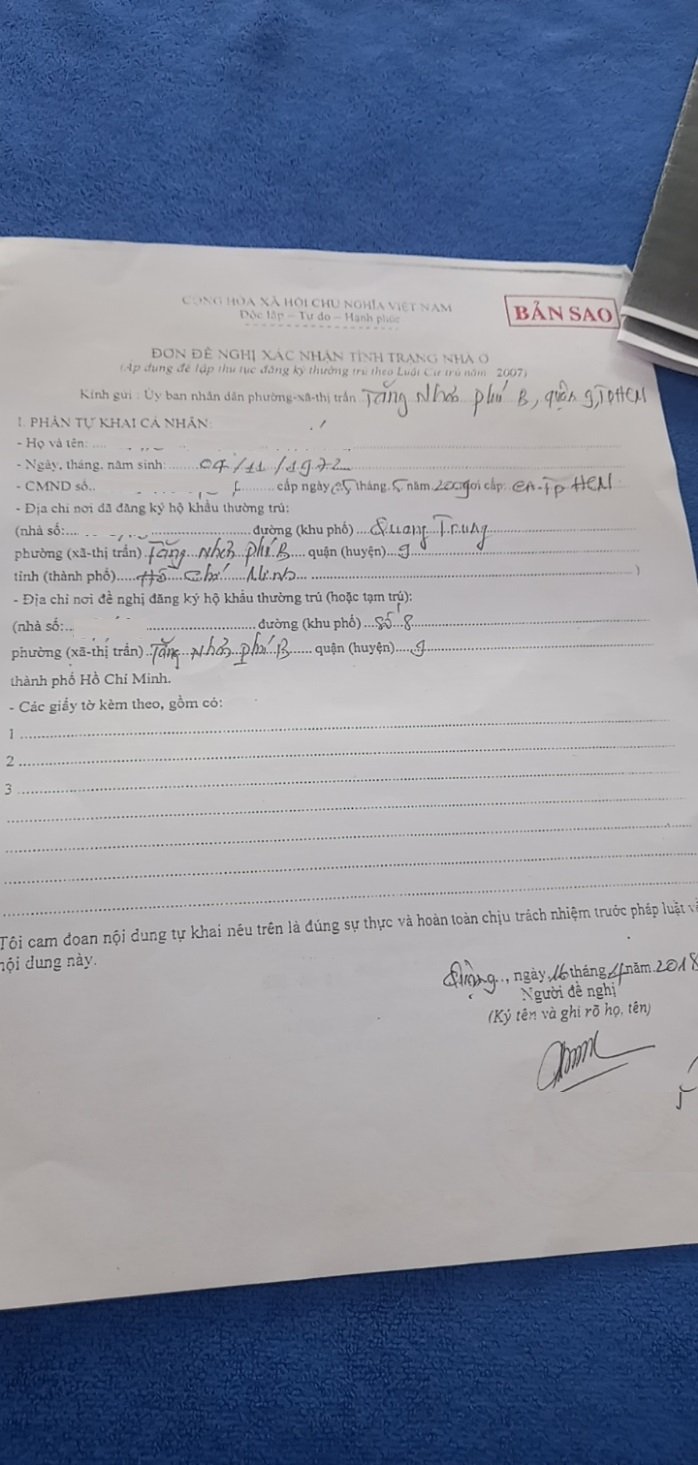 CỘNG HÒA XÃ HỘI CHỦ NGHĨA VIỆT NAM
Độc lập – Tự do – Hạnh phúc
BẢN SAO
ĐƠN ĐỀ NGHỊ XÁC NHẬN TÌNH TRẠNG NHÀ Ở
(Áp dụng để lập thủ tục đăng ký thường trú theo Luật Cư trú năm 2007)
Kính gửi : Ủy ban nhân dân phường-xã-thị trấn Tăng Nhơn phú B, quận 9, TPHCM
I. PHẦN TỰ KHAI CÁ NHÂN:
- Họ và tên:
- Ngày, tháng, năm sinh: 04/11/1972
- CMND số.. cấp ngày 05 tháng 5 năm nơi cấp: CA-Tp HCM
- Địa chỉ nơi đã đăng ký hộ khẩu thường trú:
(nhà số: đường (khu phố) Quang Trung
phường (xã-thị trấn) Tăng Nhơn phú B quận (huyện) 9
tỉnh (thành phố) Hồ Chí Minh )
- Địa chỉ nơi đề nghị đăng ký hộ khẩu thường trú (hoặc tạm trú):
(nhà số: đường (khu phố) số 8
phường (xã-thị trấn) Tăng Nhơn phú B quận (huyện) 9
thành phố Hồ Chí Minh.
- Các giấy tờ kèm theo, gồm có:
1
2
3
Tôi cam đoan nội dung tự khai nêu trên là đúng sự thực và hoàn toàn chịu trách nhiệm trước pháp luật về
nội dung này.
ngày 16 tháng 4 năm 2018
Người đề nghị
(Ký tên và ghi rõ họ, tên)